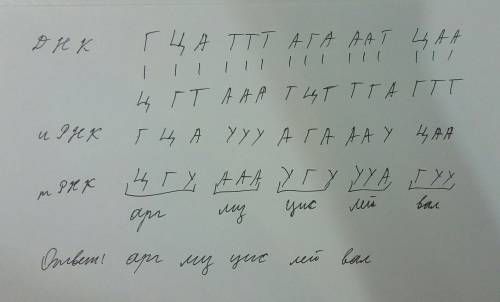 ДНК Г Ц А ТТТ АГА ААТ ЦАА
Ц Г Т ААА ТЦТ ТГА ГТТ
и РНК Г Ц А УУУ АГА ААУ ЦАА
т РНК Ц Г У ААА УГУ УУА ГУУ
арг лиз цис лей вал
Ответ: арг лиз цис лей вал